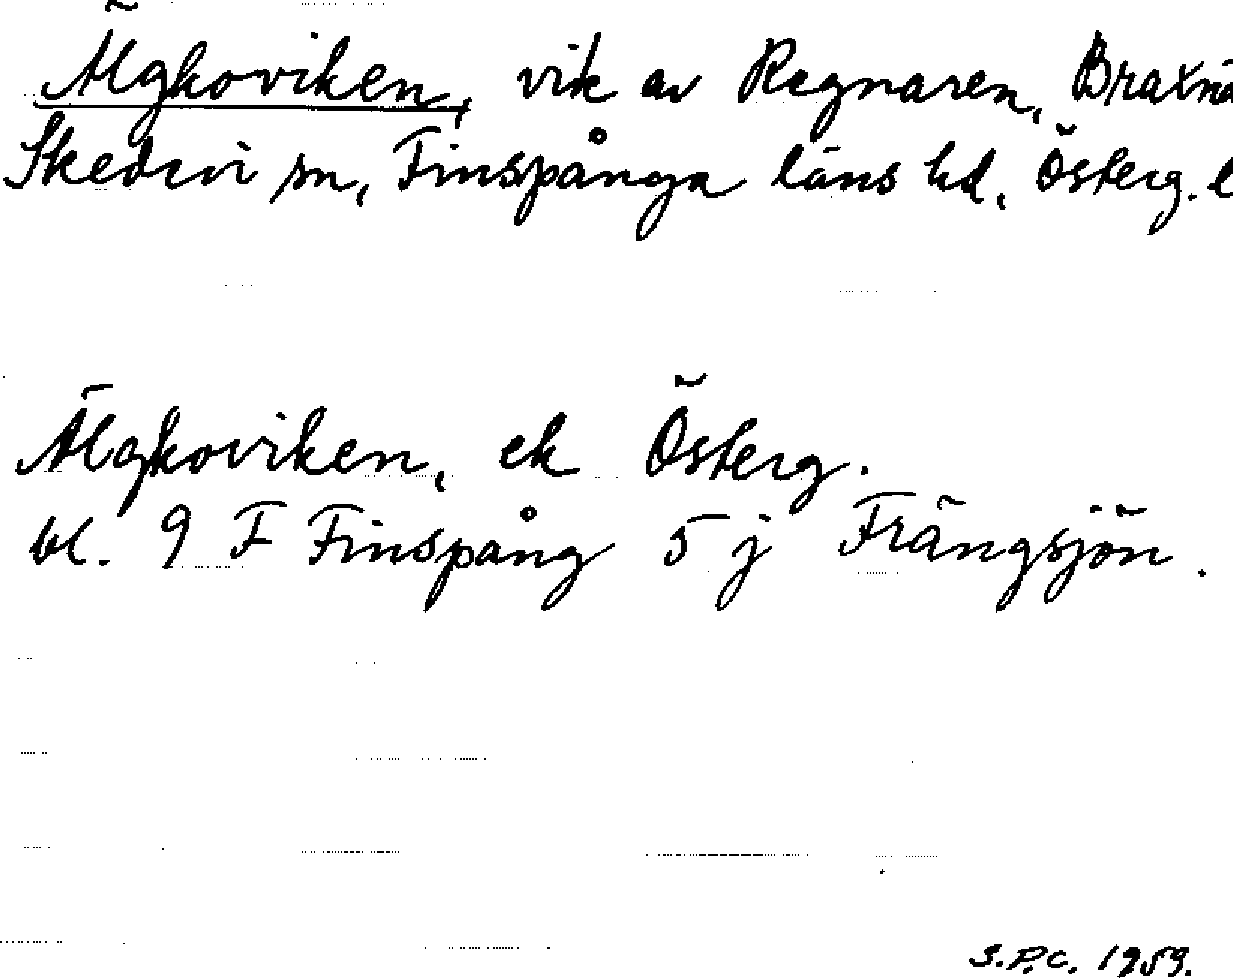 Älgkoviken, vik av Regnaren, Braxnä
Skedevi sn, Finspånga läns hd, Österg. l
Älgkoviken, ek Österg.
bl. 9 F Finspång 5 j Frängsjön.
S.P.C. 1959.